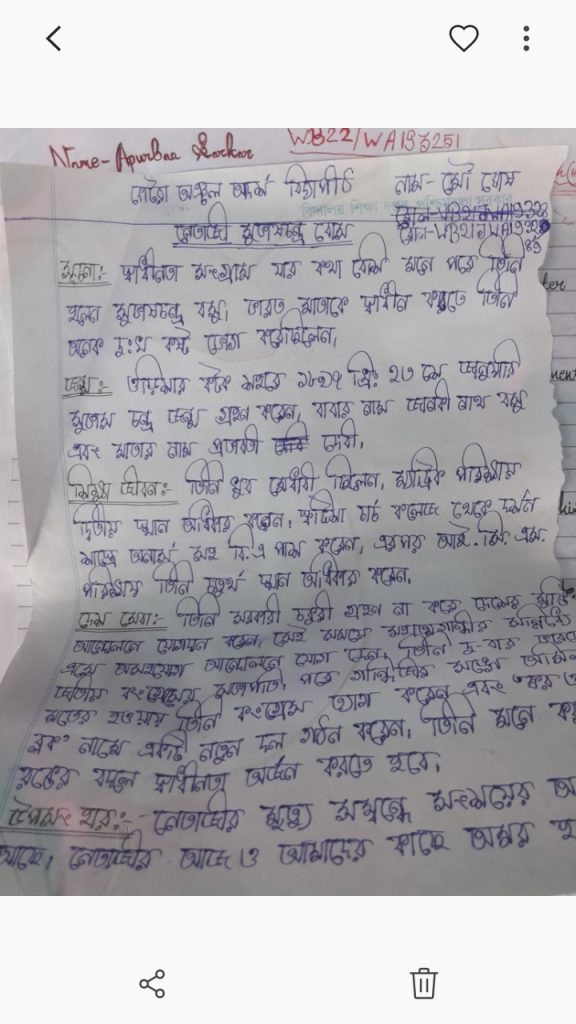 Name- Apurbaa Sarkar
WB22/WA193251
নাম- মৌ ঘোষ
নেতাজী সুভাষচন্দ্র বোস
সূচনা: স্বাধীনতা সংগ্রাম যার কথা বেশি মনে পরে তিনি
হলেন সুভাষচন্দ্র বসু, ভারত মাতাকে স্বাধীন করতে তিনি
অনেক দুঃখ কষ্ট ভোগ করেছিলেন,
জন্ম: ওড়িষার কটক শহরে ১৮৯৭ খ্রি: ২৩ শে জানুয়ারি
সুভাষ চন্দ্র জন্ম গ্রহন করেন, বাবার নাম জানকী নাথ বসু
এবং মাতার নাম প্রভাবতী দেবী,
শিক্ষা জীবন:- তিনি খুব মেধাবী ছিলেন, ম্যাট্রিক পরিক্ষায়
দ্বিতীয় স্থান অধিকার করেন, স্কটিশ চার্চ কলেজ থেকে দর্শন
শাস্ত্রে অনার্স সহ বি.এ পাশ করেন, এরপর আই. সি. এস.
পরিক্ষায় তিনি চতুর্থ স্থান অধিকার করেন,
দেশ সেবা:- তিনি সরকারী চাকুরী গ্রহন না করে দেশের মুক্তি
আন্দোলনে যোগদান করেন, সেই সময়ে মহাত্মাগান্ধীর
এসে অসহযোগ আন্দোলনে যোগ দেন, তিনি দু-বার
জাতীয় কংগ্রেসের সভাপতি, পরে গান্ধিজির সঙ্গে
মতের হওয়ায় তিনি কংগ্রেস ত্যাগ করেন এবং
ব্লক' নামে একটি নতুন দল গঠন করেন, তিনি মনে
রক্তের বদলে স্বাধীনতা অর্জন করতে হবে,
উপসংহার:- নেতাজীর মৃত্যু সম্বন্ধে সংশয়ের
আছে, নেতাজীর আজ ও আমাদের কাছে অমর